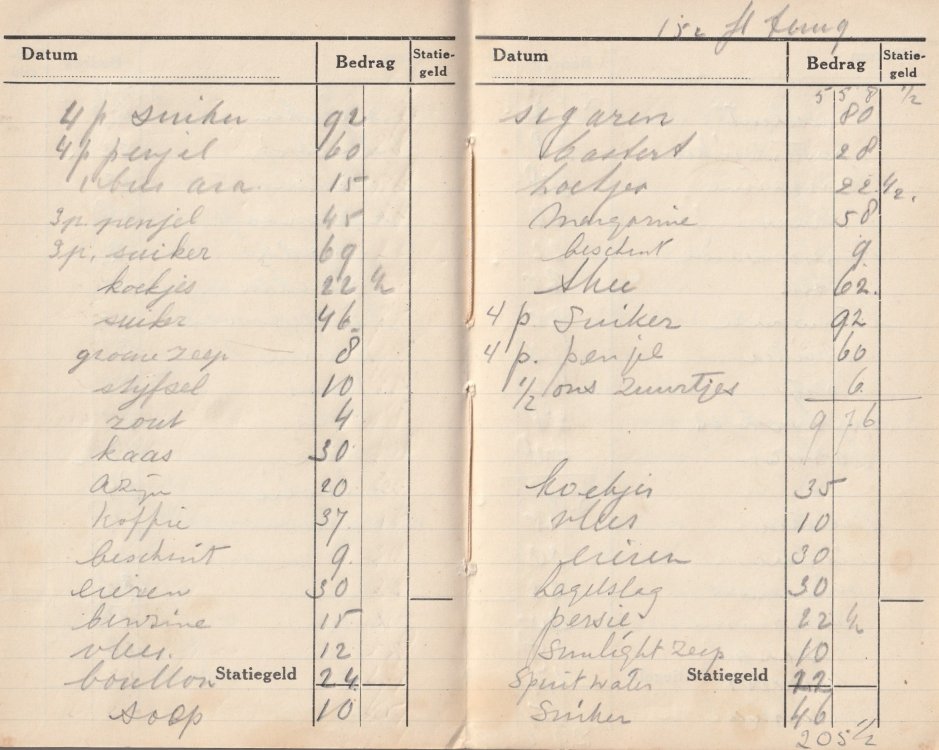 Datum Bedrag Statie-geld
4 p suiker 92
4 p penjel 60
1 bus 15
3 p. penjel 45
3 p. suiker 69
koekjes 22 ½
suiker 46
groene zeep 8
stijfsel 10
zout 4
kaas 30
azijn 20
koffie 37
beschuit 9
eieren 30
benzine 15
vlees. 12
bouillon Statiegeld 24
soep 10
15 st
Datum Bedrag Statie-geld
5 58 ½
sigaren 80
bastert 28
koekjes 22 ½
Margarine 58
beschuit 9
thee 62
4 p. Suiker 92
4 p. penjel 60
½ ons zuurtjes 6
9 76
koekjes 35
vlees 10
eieren 30
hagelslag 30
persie 22 ½
Sunlight zeep 10
Spiritwater Statiegeld
Suiker 46
205 ½